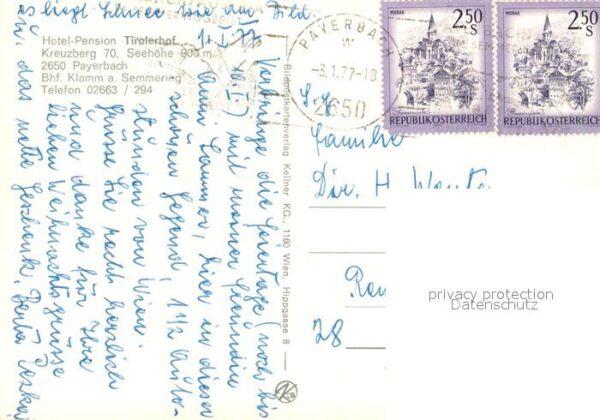 es liegt Schnee wie am Bild
Hotel-Pension Tirolerhof
Kreuzberg 70, Seehöhe 900 m
2650 Payerbach
Bhf. Klamm a. Semmering
Telefon 02663 / 294
1.1.77
Verbringe die Feiertage (noch bis
) mit meiner Freundin
hier in dieser
schönen Gegend, 1 1/2 Auto-
stunden von Wien.
Grüsse Sie recht herzlich
und danke für Ihre
lieben Weihnachtsgrüsse
u. das nette Geschenk.
Bildpostkartenverlag Kellner KG., 1160 Wien, Hippgasse 8
PAYERBACH
-3.1.77-18
2650
MURAU
2.50 S
REPUBLIK ÖSTERREICH
MURAU
2.50 S
REPUBLIK ÖSTERREICH
Familie
Dir. H
28
privacy protection
Datenschutz